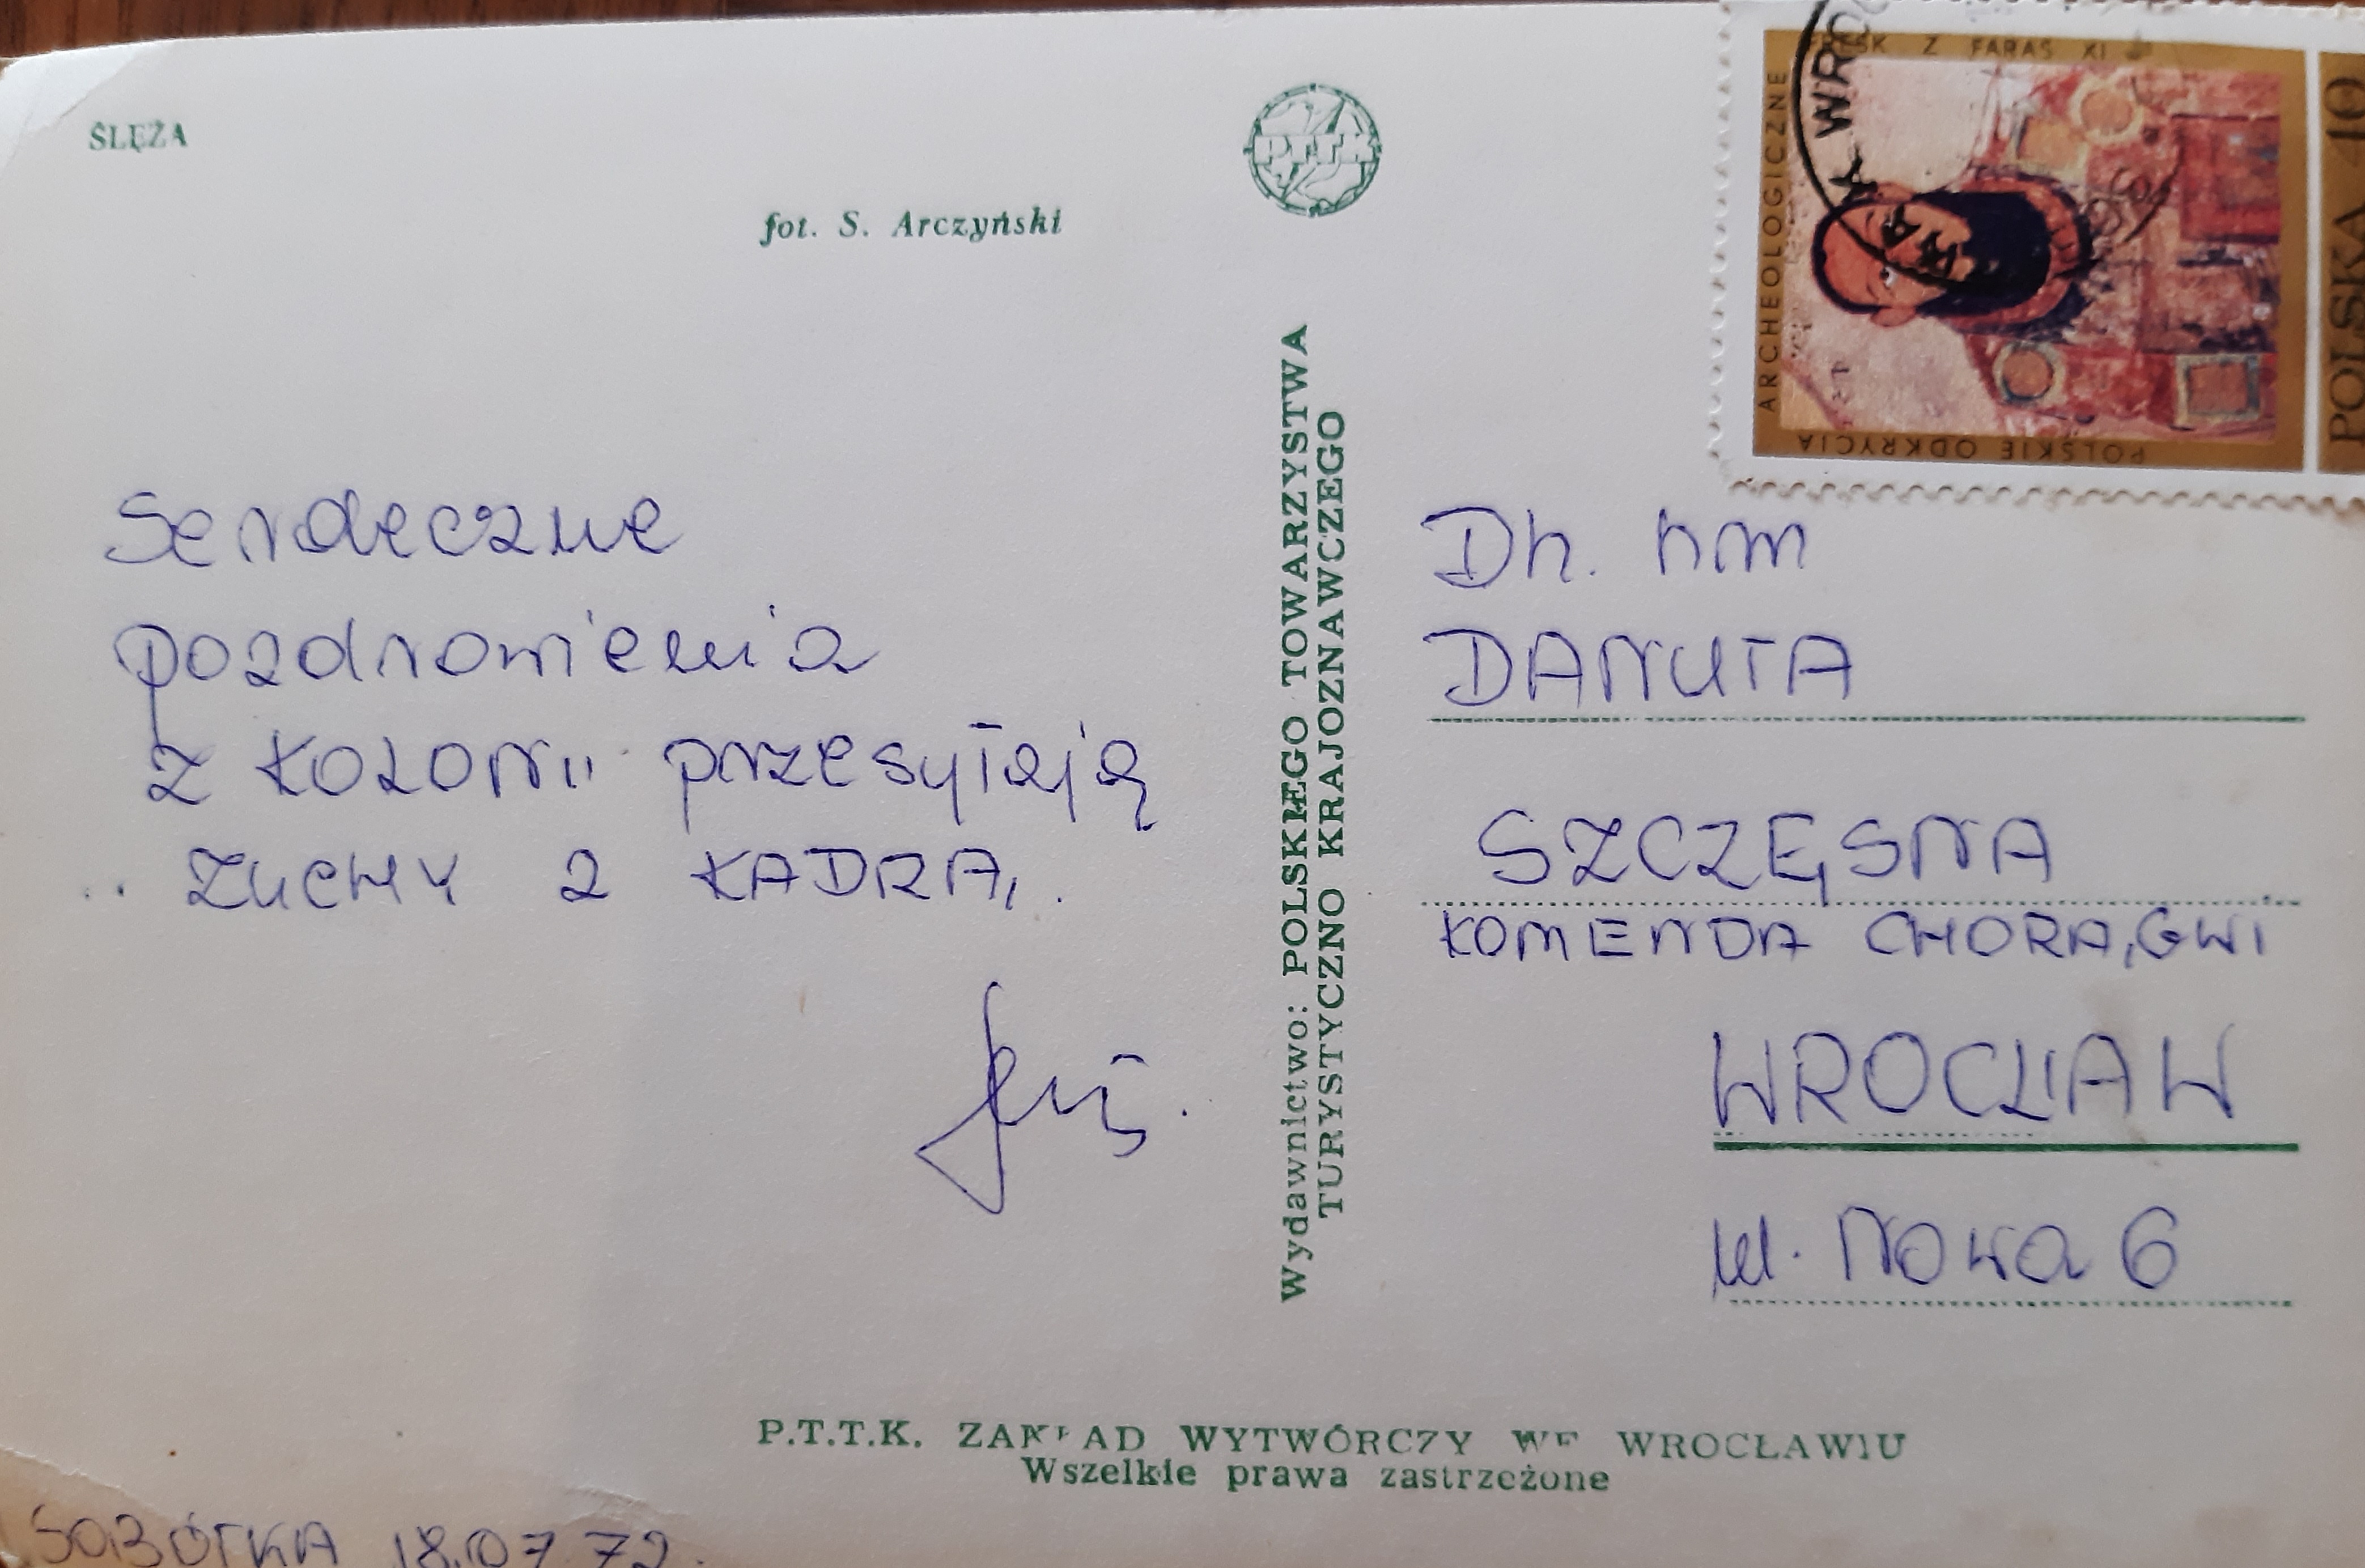 ŚLĘŻA
fot. S. Arczyński
Serdeczne
pozdrowienia
z KOLONII przesyłają
ZUCHY z KADRĄ.
SOBÓTKA 18.07.72.
PTTK
Wydawnictwo: POLSKIEGO TOWARZYSTWA
TURYSTYCZNO KRAJOZNAWCZEGO
FRESK Z FARAS XI
ARCHEOLOGICZNE
POLSKIE ODKRYCIA
POLSKA 40
Dh. hm
DANUTA
SZCZĘSNA
KOMENDA CHORĄGWI
WROCŁAW
ul. Nowa 6
P.T.T.K. ZAKŁAD WYTWÓRCZY WE WROCŁAWIU
Wszelkie prawa zastrzeżone